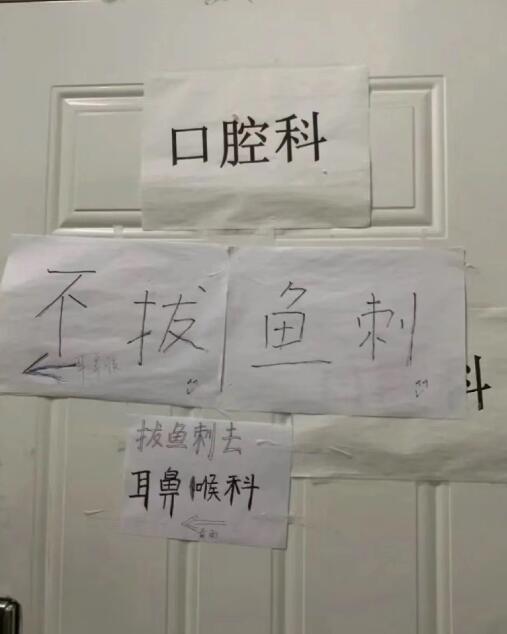 口腔科
不拔鱼刺
耳鼻喉
科
拔鱼刺去
耳鼻喉科